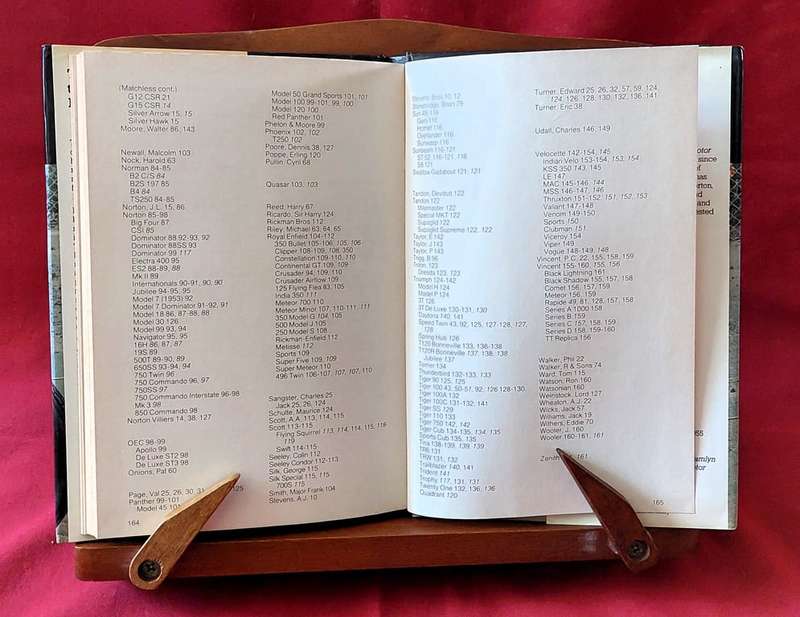 (Matchless cont.)
G12 CSR 21
G15 CSR 14
Silver Arrow 15, 15
Silver Hawk 15
Moore, Walter 86, 143
Newall, Malcolm 103
Nock, Harold 63
Norman 84-85
B2 C/S 84
B2S 197 85
B4 84
TS250 84-85
Norton, J.L. 15, 86
Norton 85-98
Big Four 87
CSI 85
Dominator 88 92-93, 92
Dominator 88SS 93
Dominator 99 117
Electra 400 95
ES2 88-89, 88
Mk II 89
Internationals 90-91, 90, 90
Jubilee 94-95, 95
Model 7 (1953) 92
Model 7 Dominator 91-92, 91
Model 18 86, 87-88, 88
Model 30 126
Model 99 93, 94
Navigator 95, 95
16H 86, 87, 87
19S 89
500T 89-90, 89
650SS 93-94, 94
750 Twin 96
750 Commando 96, 97
750SS 97
750 Commando Interstate 96-98
Mk 3 98
850 Commando 98
Norton Villiers 14, 38, 127
OEC 98-99
Apollo 99
De Luxe ST2 98
De Luxe ST3 98
Onions, Pat 60
Page, Val 25, 26, 30, 31, 125
Panther 99-101
Model 45 101
164
Model 50 Grand Sports 101, 101
Model 100 99-101, 99, 100
Model 120 100
Red Panther 101
Phelon & Moore 99
Phoenix 102, 102
T250 102
Poore, Dennis 38, 127
Poppe, Erling 120
Pullin, Cyril 68
Quasar 103, 103
Reed, Harry 67
Ricardo, Sir Harry 124
Rickman Bros 112
Riley, Michael 63, 64, 65
Royal Enfield 104-112
350 Bullet 105-106, 105, 106
Clipper 108-109, 108, 350
Constellation 109-110, 110
Continental GT 109, 109
Crusader 94, 109, 110
Crusader Airflow 109
125 Flying Flea 83, 105
India 350 111
Meteor 700 110
Meteor Minor 107, 110-111, 111
350 Model G 104, 105
500 Model J 105
250 Model S 108
Rickman-Enfield 112
Metisse 112
Sports 109
Super Five 109, 109
Super Meteor 110
496 Twin 106-107, 107, 107, 110
Sangster, Charles 25
Jack 25, 26, 124
Schulte, Maurice 124
Scott, A.A. 113, 114, 115
Scott 113-115
Flying Squirrel 113, 114, 114, 115, 116
119
Swift 114-115
Seeley, Colin 112
Seeley Condor 112-113
Silk, George 115
Silk Special 115, 115
700S 115
Smith, Major Frank 104
Stevens, A.J. 10
Stevens, Bros 10, 12
Stonebridge, Brian 79
Sun 48, 116
Gem 116
Hornet 116
Overlander 116
Sunwasp 116
Sunbeam 116-121
S7, S2 116-121, 118
S8 121
Swallow Gadabout 121, 121
Tandon, Devdutt 122
Tandon 122
Milemaster 122
Special MKT 122
Supaglid 122
Supaglid Supreme 122, 122
Taylor, E 142
Taylor, J 143
Taylor, P 143
Trigg, B 96
Triton, 123
Dresda 123, 123
Triumph 124-142
Model H 124
Model P 124
3T 126
3T De Luxe 130-131, 130
Daytona 140, 141
Speed Twin 43, 92, 125, 127-128, 127,
128
Spring Hub 126
T120 Bonneville 133, 136-138
T120R Bonneville 137, 138, 138
Jubilee 137
Terrier 134
Thunderbird 132-133, 133
Tiger 90 125, 125
Tiger 100 43, 50-57, 92, 126 128-130,
Tiger 100A 132
Tiger 100C 131-132, 141
Tiger SS 129
Tiger 110 133
Tiger 750 142, 142
Tiger Cub 134-135, 134, 135
Sports Cub 135, 135
Tina 138-139, 139, 139
TR6 131
TRW 131, 132
Trailblazer 140, 141
Trident 141
Trophy, 117, 131, 131
Twenty One 132, 136, 136
Quadrant 120
Turner, Edward 25, 26, 32, 57, 59, 124,
124, 126, 128, 130, 132, 136, 141
Turner, Eric 38
Udall, Charles 146, 149
Velocette 142-154, 145
Indian Velo 153-154, 153, 154
KSS 350 143, 145
LE 147
MAC 145-146, 144
MSS 146-147, 146
Thruxton 151-152, 151, 152, 153
Valiant 147-148
Venom 149, 150
Sports 150
Clubman 151
Viceroy 154
Viper 149
Vogue 148-149, 148
Vincent, P.C. 22, 155, 158, 159
Vincent 155-160, 155, 156
Black Lightning 161
Black Shadow 155, 157, 158
Comet 156, 157, 159
Meteor 156, 159
Rapide 49, 81, 128, 157, 158
Series A 1000 158
Series B 159
Series C 157, 158, 159
Series D 158, 159-160
TT Replica 156
Walker, Phil 22
Walker, R & Sons 74
Ward, Tom 115
Watson, Ron 160
Watsonian 160
Weinstock, Lord 127
Wheaton, A.J. 22
Wicks, Jack 57
Williams, Jack 19
Withers, Eddie 70
Wooler, J. 160
Wooler 160-161, 161
Zenith 161
165